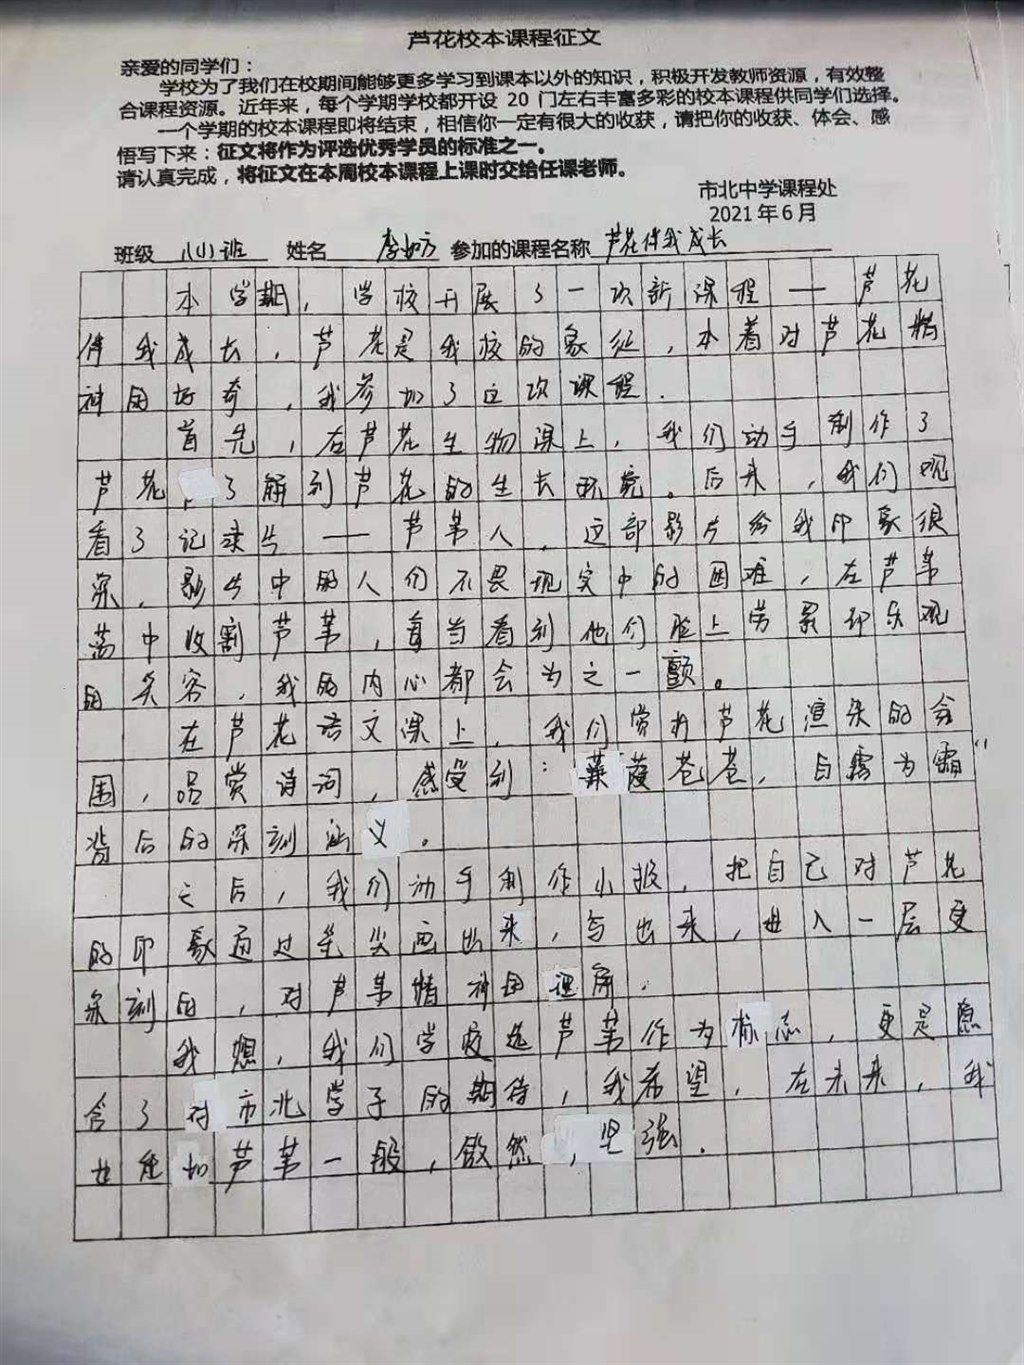 芦花校本课程征文
亲爱的同学们：
学校为了我们在校期间能够更多学习到课本以外的知识，积极开发教师资源，有效整
合课程资源。近年来，每个学期学校都开设 20 门左右丰富多彩的校本课程供同学们选择。
一个学期的校本课程即将结束，相信你一定有很大的收获，请把你的收获、体会、感
悟写下来：征文将作为评选优秀学员的标准之一。
请认真完成，将征文在本周校本课程上课时交给任课老师。
市北中学课程处
2021年6月
班级 八(4)班 姓名 李如方 参加的课程名称 芦花伴我成长
本学期，学校开展了一次新课程——芦花
伴我成长，芦花是我校的象征，本着对芦花精
神的好奇，我参加了这次课程．
首先，在芦花生物课上，我们动手制作了
芦花，了解到芦花的生长环境。后来，我们观
看了记录片——芦苇人．这部影片给我印象很
深，影片中的人们不畏现实中的困难，在芦苇
荡中收割芦苇，每当看到他们脸上劳累却乐观
的笑容，我的内心都会为之一颤。
在芦花语文课上，我们赏析芦花渲染的氛
围，品赏诗词，感受到：蒹葭苍苍，白露为霜“
背后的深刻涵义．
之后，我们动手制作小报，把自己对芦花
的印象通过笔尖画出来，写出来，进入一层更
深刻的，对芦苇精神的理解．
我想，我们学校选芦苇作为标志，更是隐
含了对市北学子的期待，我希望，在未来，我
也能如芦苇一般，傲然，坚强．